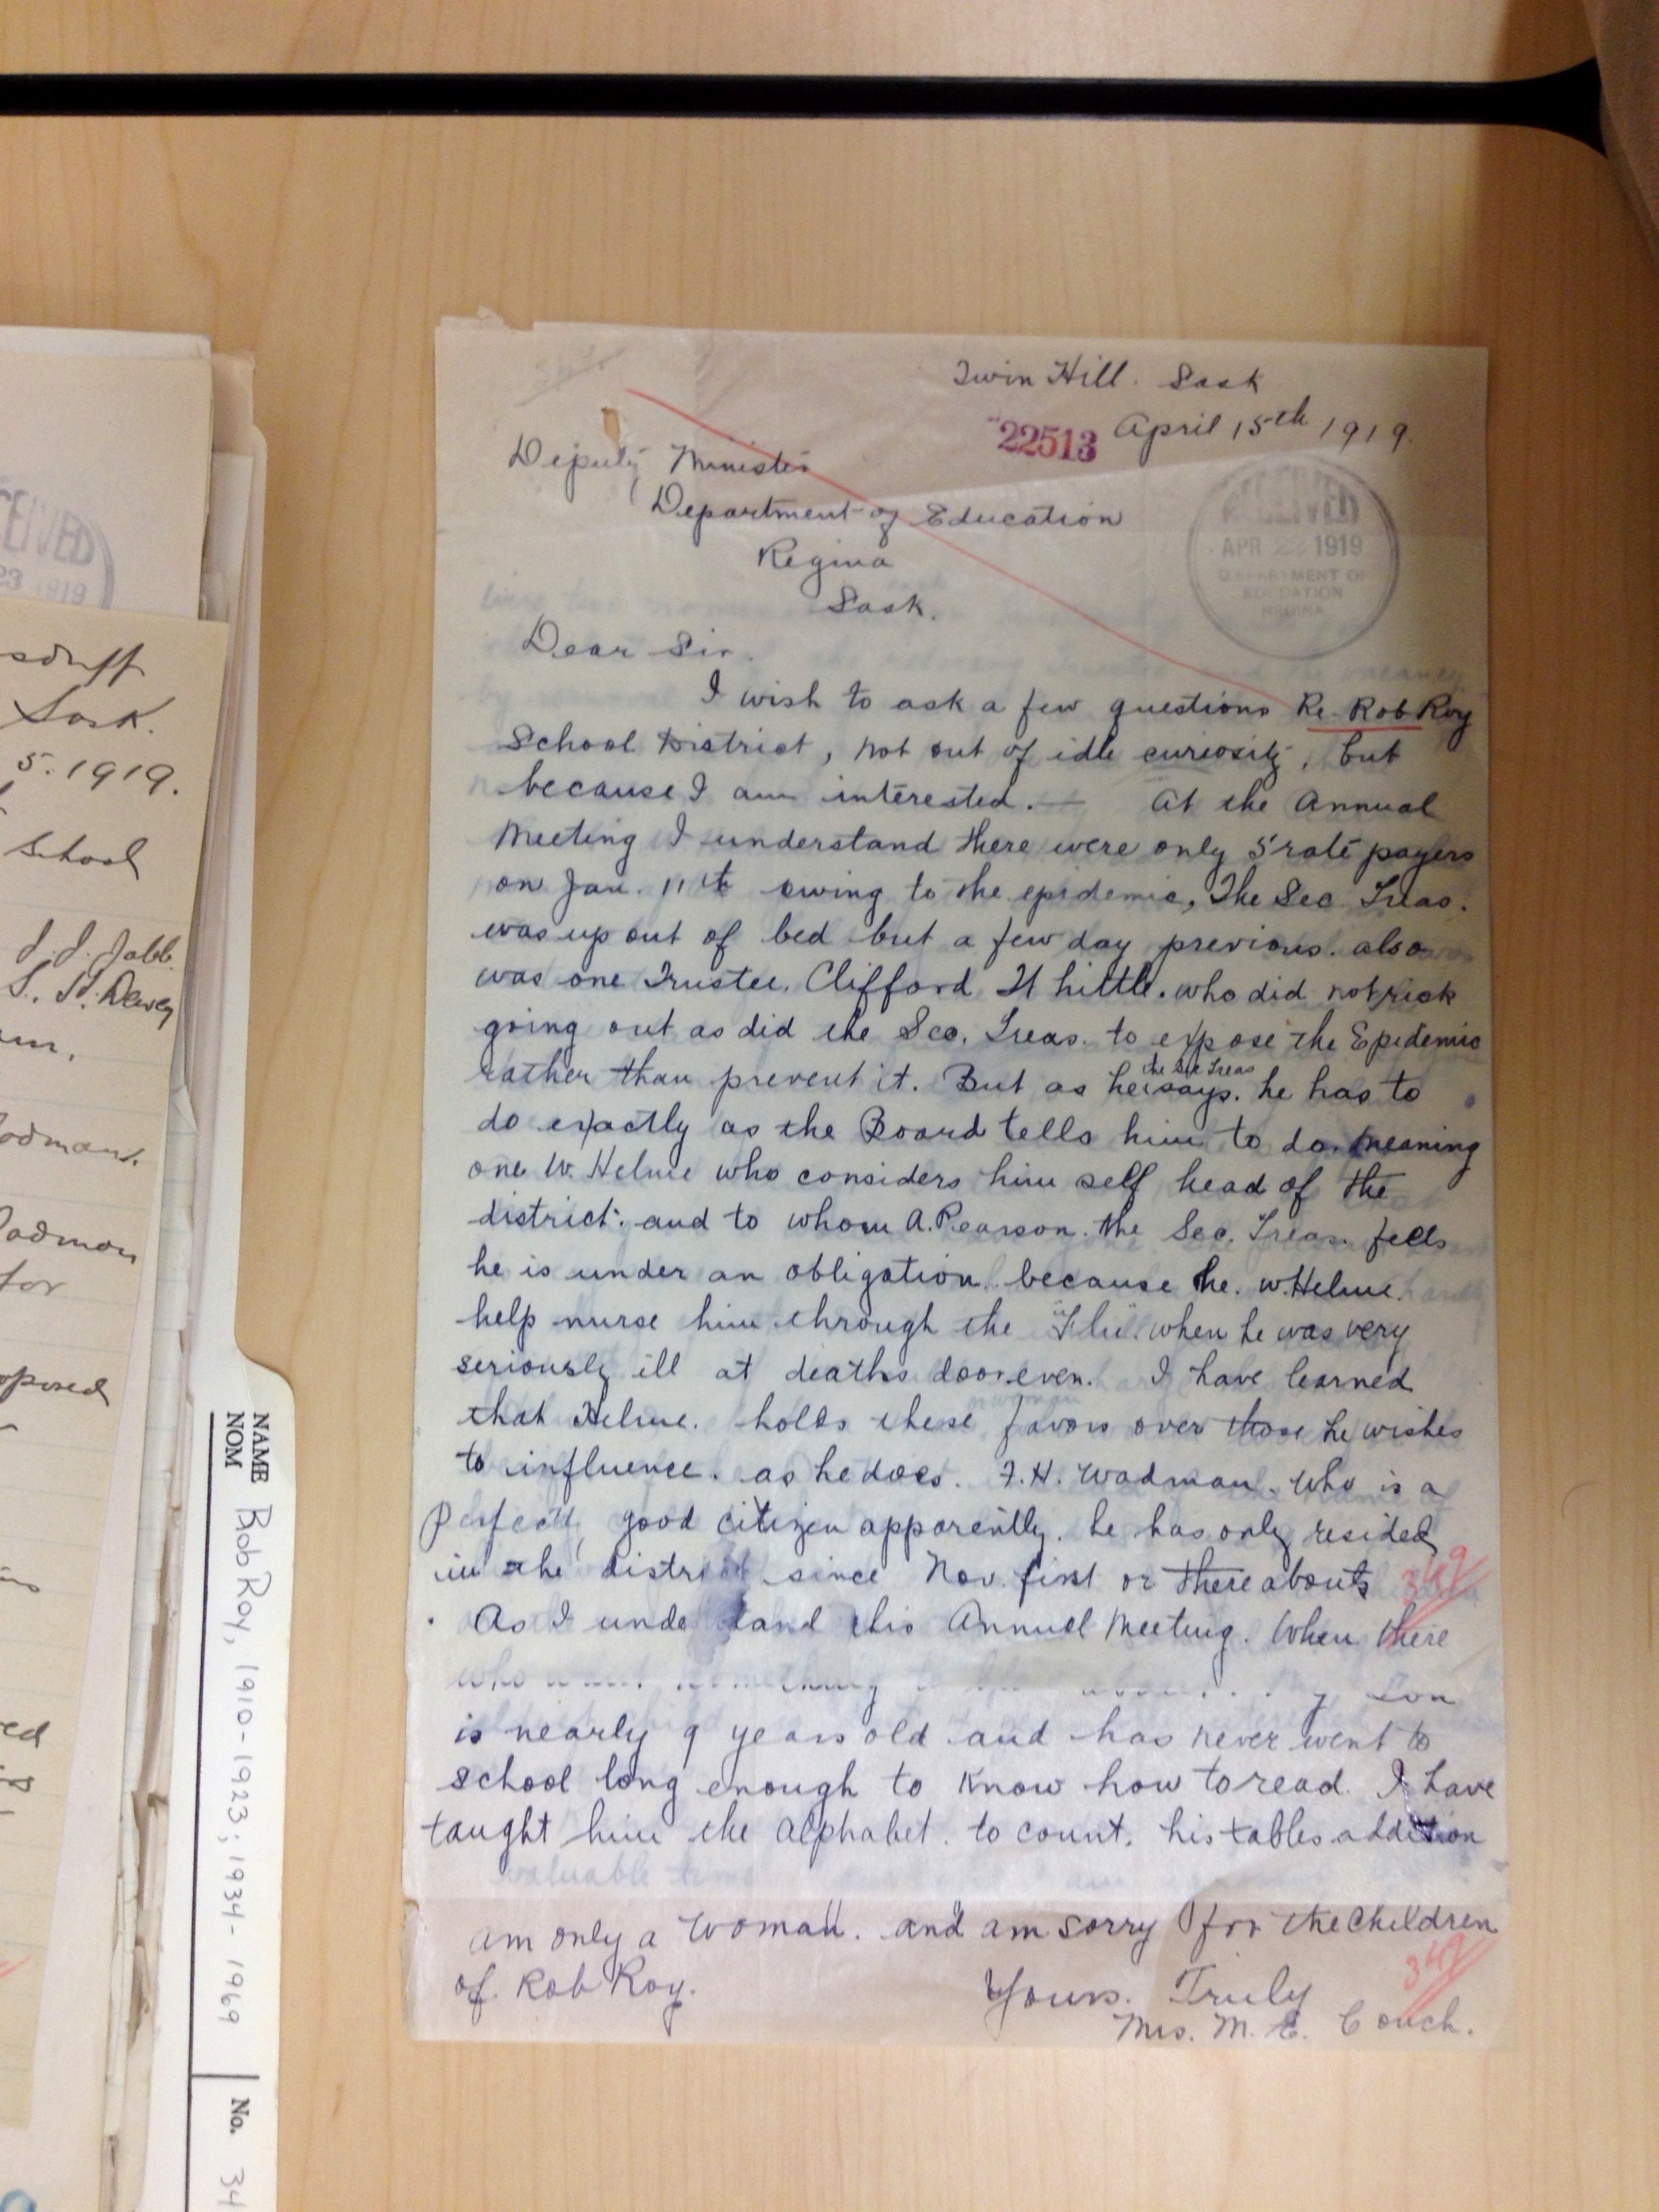 Twin Hill. Sask
22513 April 15th 1919.
Deputy Minister
Department of Education
Regina
Sask.
RECEIVED
APR 22 1919
DEPARTMENT OF
EDUCATION
REGINA
Dear Sir.
I wish to ask a few questions Re- Rob Roy
School District, not out of idle curiosity, but
because I am interested. — At the Annual
Meeting I understand there were only 5 rate payers
on Jan. 11th owing to the epidemic, The Sec Treas.
was up out of bed but a few day previous. also
was one Trustee. Clifford H Little. who did not risk
going out as did the Sec. Treas. to expose the Epidemic
rather than prevent it. But as he the Sec Treas says. he has to
do exactly as the Board tells him to do. meaning
one W. Helme who considers him self head of the
district. and to whom A. Pearson. the Sec. Treas. feels
he is under an obligation. because he. W Helme.
help nurse him through the "Flu". when he was very
seriously ill at deaths door even. I have learned
that Helme. holds these favors over those he wishes
to influence. as he does. F. H. Wadman. Who is a
Perfectly good citizen apparently. he has only resided
in the district since Nov. first or there abouts 349
As I understand this Annual Meeting. When there
who something son
is nearly 9 years old and has never went to
school long enough to know how to read. I have
taught him the alphabet. to count. his tables addition
valuable time
am only a Woman. and am sorry for the Children
of. Rob Roy.
349
Yours. Truly
Mrs. M. E. Couch.
RECEIVED
23 1919
Sask.
5. 1919.
School
J. J. Jabb.
S. H. Dewey
for
NAME
NOM
Rob Roy, 1910-1923; 1934-1969
No. 34